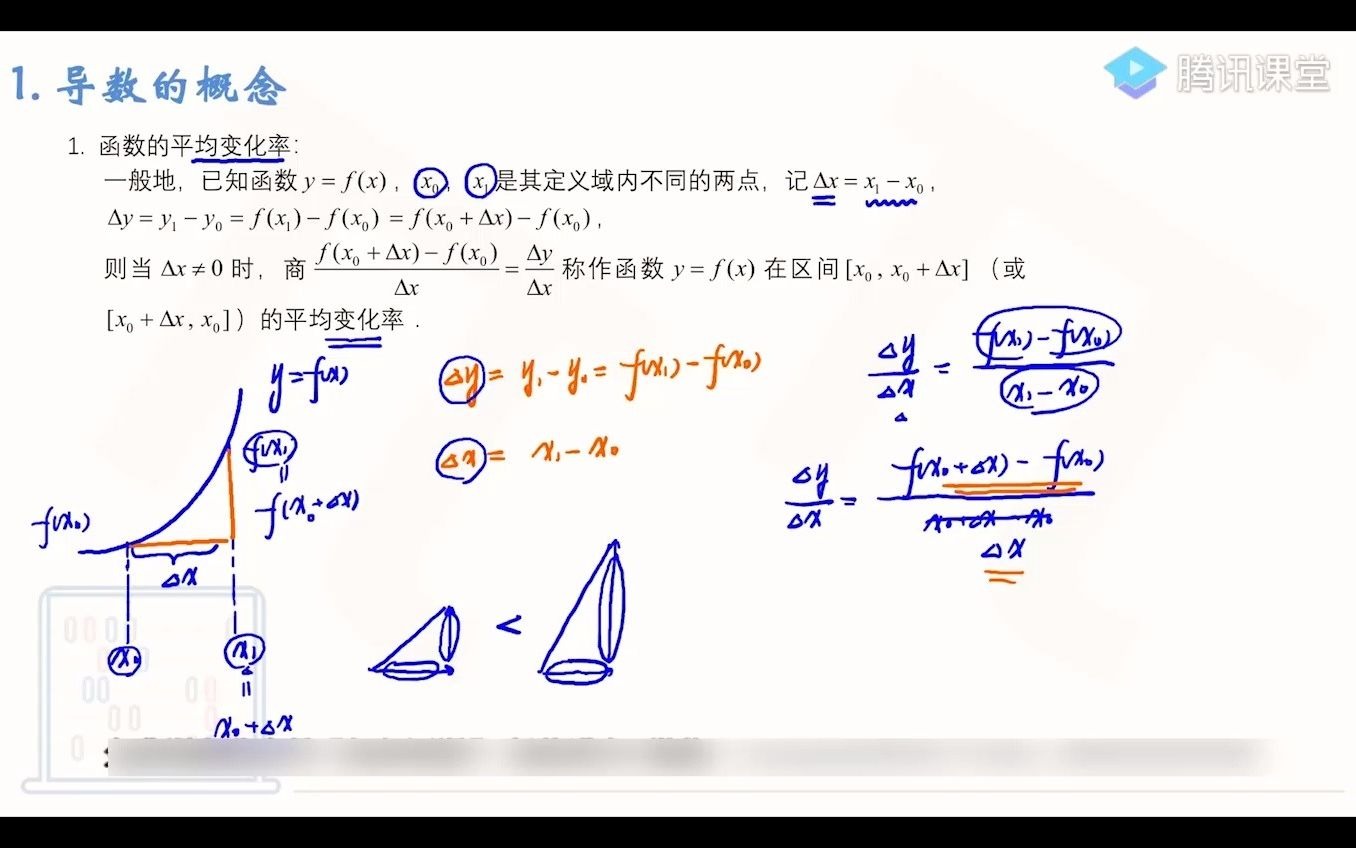 1. 导数的概念
腾讯课堂
1. 函数的平均变化率：
一般地，已知函数 y = f(x)，x₀，x₁是其定义域内不同的两点，记 Δx = x₁ − x₀，
Δy = y₁ − y₀ = f(x₁) − f(x₀) = f(x₀ + Δx) − f(x₀)，
则当 Δx ≠ 0 时，商 \frac{f(x₀ + Δx) − f(x₀)}{Δx} = \frac{Δy}{Δx} 称作函数 y = f(x) 在区间 [x₀, x₀ + Δx] （或
[x₀ + Δx, x₀]）的平均变化率．
y = f(x)
f(x₁)
=
f(x₀+Δx)
f(x₀)
Δx
x₀
x₁
=
x₀+Δx
Δy = y₁ − y₀ = f(x₁) − f(x₀)
Δx = x₁ − x₀
<
\frac{Δy}{Δx} = \frac{f(x₁) − f(x₀)}{x₁ − x₀}
\frac{Δy}{Δx} = \frac{f(x₀+Δx) − f(x₀)}{x₀+Δx−x₀}
Δx